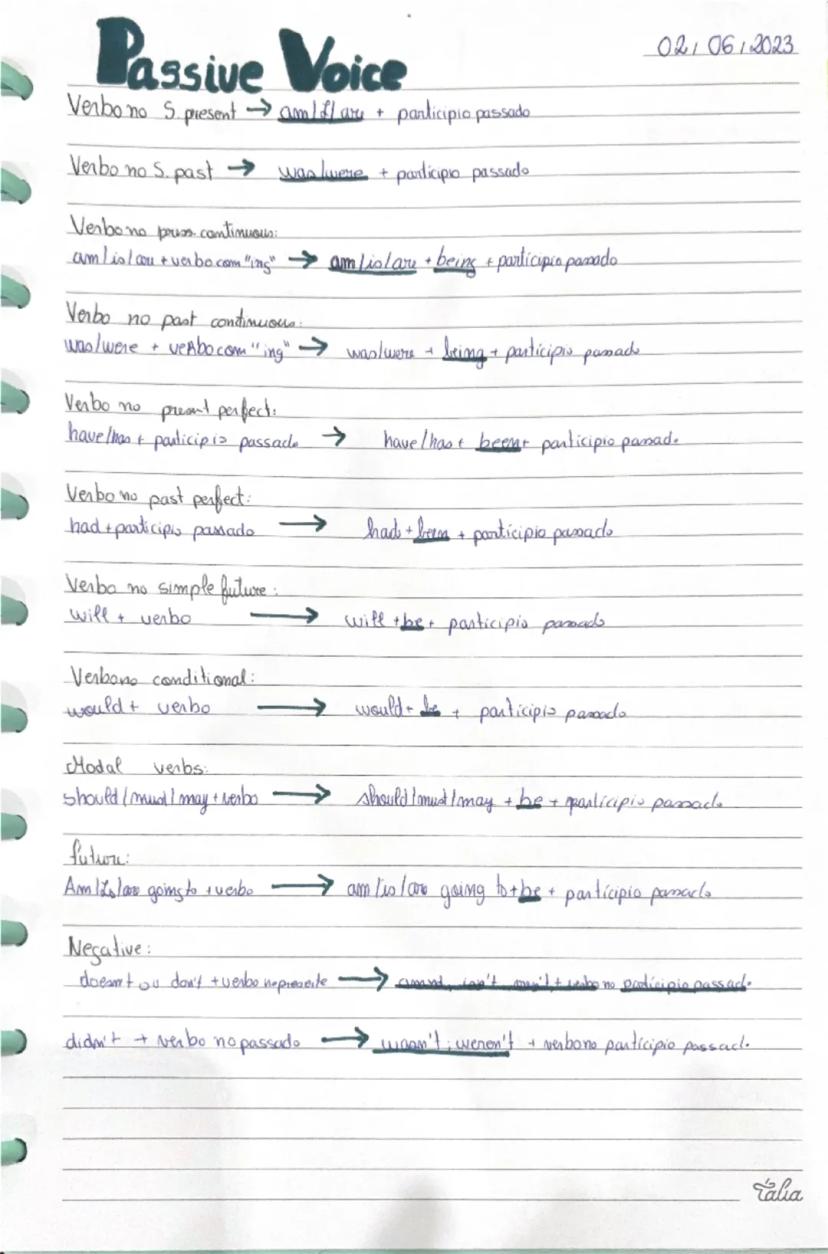 Passive Voice
02/06/2023
Verbo no S. present → am/is/are + participio passado
Verbo no S. past → was/were + participio passado
Verbo no pres. continuous:
am/is/are + verbo com "ing" → am/is/are + being + participio passado
Verbo no past continuous:
was/were + verbo com "ing" → was/were + being + participio passado
Verbo no present perfect:
have/has + participio passado → have/has + been + participio passado
Verbo no past perfect:
had + participio passado → had + been + participio passado
Verbo no simple future:
will + verbo → will + be + participio passado
Verbo no conditional:
would + verbo → would + be + participio passado
Modal verbs:
should/must/may + verbo → should/must/may + be + participio passado
future:
Am/Is/are going to + verbo → am/is/are going to + be + participio passado
Negative:
doesn't ou don't + verbo no presente → isn't + verbo no participio passado
didn't + verbo no passado → wasn't; weren't + verbo no participio passado
Tália